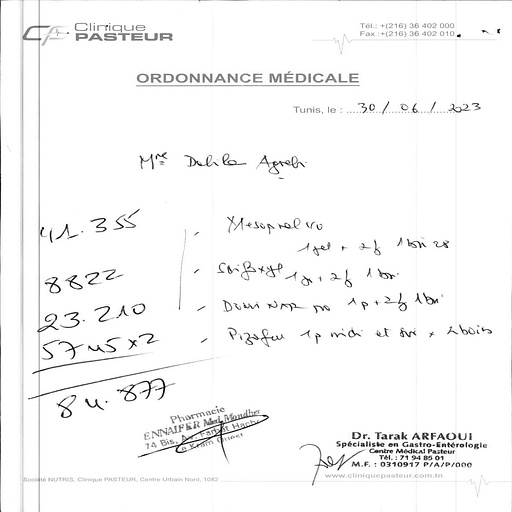 Clinique
PASTEUR
Tél.: +(216) 36 402 000
Fax :+(216) 36 402 010
ORDONNANCE MÉDICALE
Tunis, le : 30 / 06 / 2023
Mme Dalila Agrebi
41.355
1 gel + 2/j 1 boi 28
8822
1 + 2/j 1 boi
23.210
1p + 2/j 1 boi
5745 x 2
1p midi et soir x 2 bois
84.877
Pharmacie
ENNAIFER Med Mondher
74 Bis, Av. Farhat Hached
Le Kram Ouest
Dr. Tarak ARFAOUI
Spécialiste en Gastro-Entérologie
Centre Médical Pasteur
Tél. : 71 94 85 01
M.F. : 0310917 P/A/P/000
Société NUTRIS, Clinique PASTEUR, Centre Urbain Nord, 1082
www.cliniquepasteur.com.tn